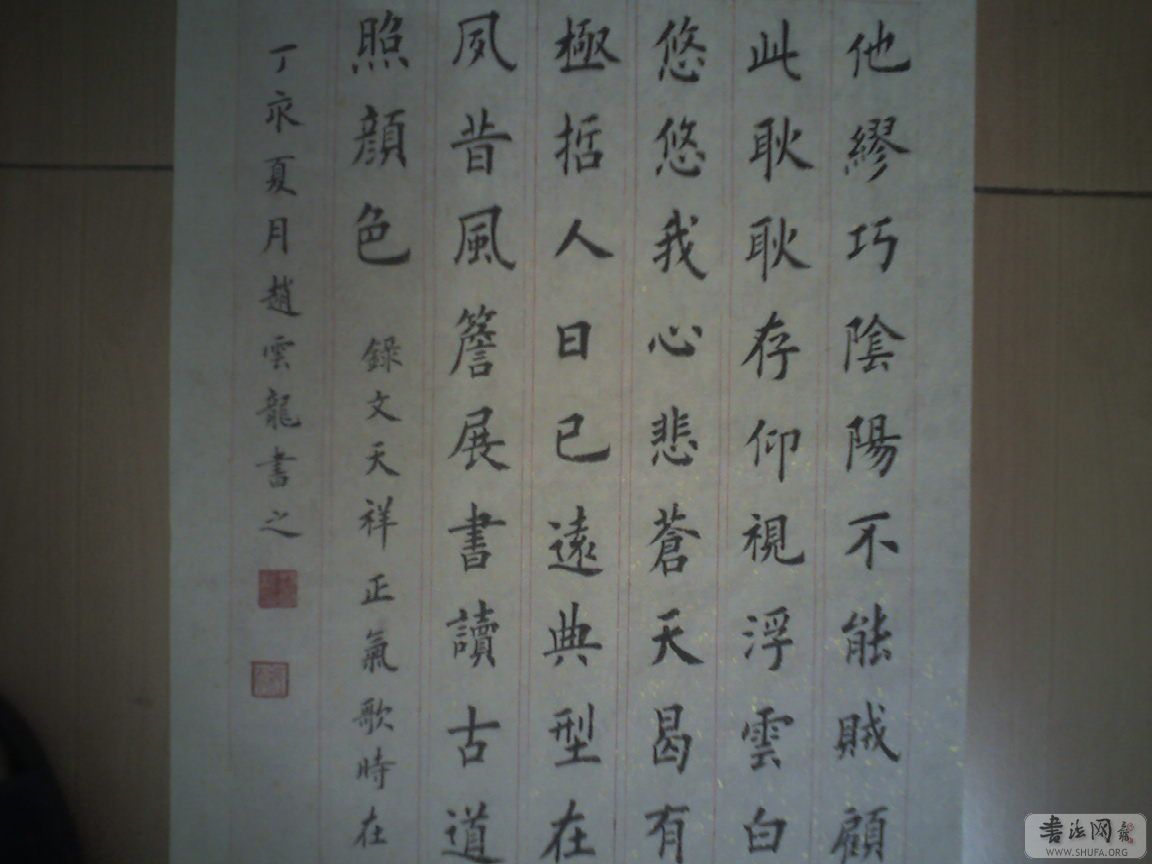 他繆巧陰陽不能賊顧
此耿耿存仰視浮雲白
悠悠我心悲蒼天曷有
極哲人日已遠典型在
夙昔風簷展書讀古道
照顔色 錄文天祥正氣歌時在
丁亥夏月趙雲龍書之
書法网
WWW.SHUFA.ORG